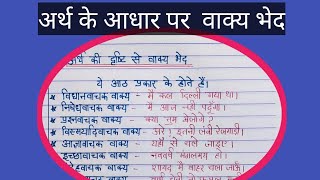 अर्थ के आधार पर वाक्य भेद
अर्थ की दृष्टि से वाक्य भेद
ये आठ प्रकार के होते हैं।
* विधानवाचक वाक्य - मैं कल दिल्ली गया था।
* निषेधवाचक वाक्य - मैं आज नहीं पढूँगा।
* प्रश्नवाचक वाक्य - क्या तुम खेलोगे?
* विस्मयादिवाचक वाक्य - अरे! इतनी लंबी रेलगाड़ी।
* आज्ञावाचक वाक्य - यहाँ से चले जाइए।
* इच्छावाचक वाक्य - नववर्ष मंगलमय हो।
वाचक वाक्य - शायद मैं बाहर चला जाऊँ।
वाक्य -